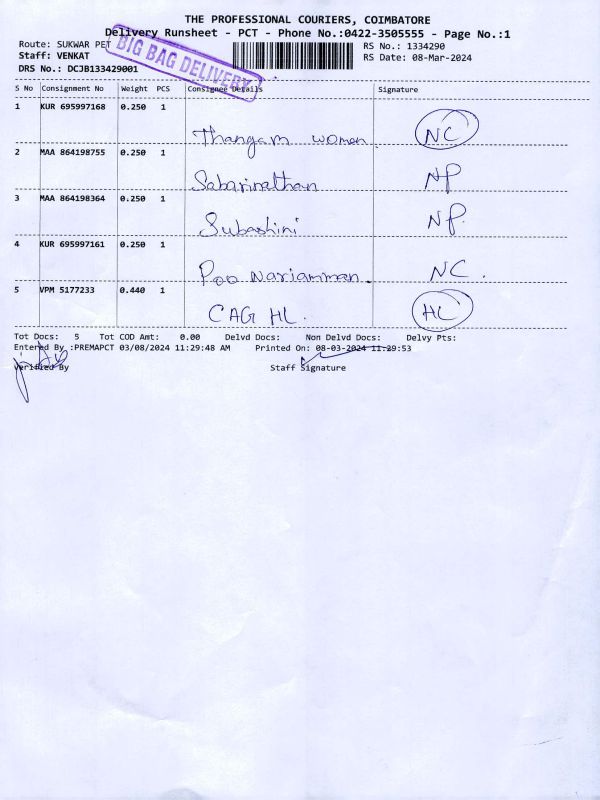 THE PROFESSIONAL COURIERS, COIMBATORE
Delivery Runsheet - PCT - Phone No.:0422-3505555 - Page No.:1
Route: SUKWAR PET
RS No.: 1334290
Staff: VENKAT
RS Date: 08-Mar-2024
DRS No.: DCJB133429001
BIG BAG DELIVERY
S No Consignment No Weight PCS Consignee Details Signature
1 KUR 695997168 0.250 1
Thangam women NC
2 MAA 864198755 0.250 1
Sabarinathan NP
3 MAA 864198364 0.250 1
Subashini NP.
4 KUR 695997161 0.250 1
Poo Mariamman NC.
5 VPM 5177233 0.440 1
CAG HL. HL
Tot Docs: 5 Tot COD Amt: 0.00 Delvd Docs: Non Delvd Docs: Delvy Pts:
Entered By :PREMAPCT 03/08/2024 11:29:48 AM Printed On: 08-03-2024 11:29:53
Verified By Staff Signature